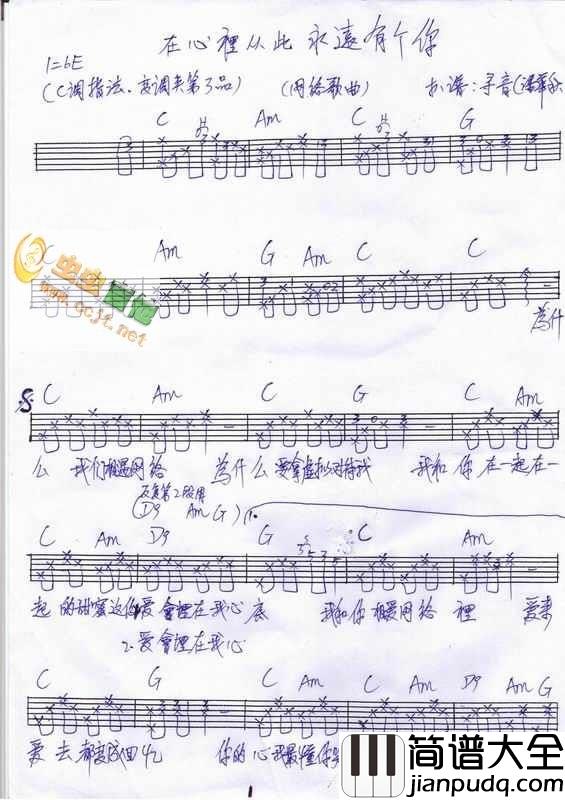 在心裡从此永遠有个你
1=bE
(C调指法、变调夹第3品) (网络歌曲) 扒谱:寻音(
C Am C G
C Am G Am C C
虫虫吉他
www.ccjt.net
為什
C Am C G C Am
么 我们相遇网络 為什么要拿虚拟对待我 我和你在一起在一
反复第2段用
(D9 Am G) 1.
C Am D9 G C Am
起的甜蜜 爱會埋在我心底 我和你相遇网络裡 爱来
2.爱會埋在我心
C G C Am D9 Am G
爱去都 你的心我最懂你
1
简谱大全
jianpudq.com